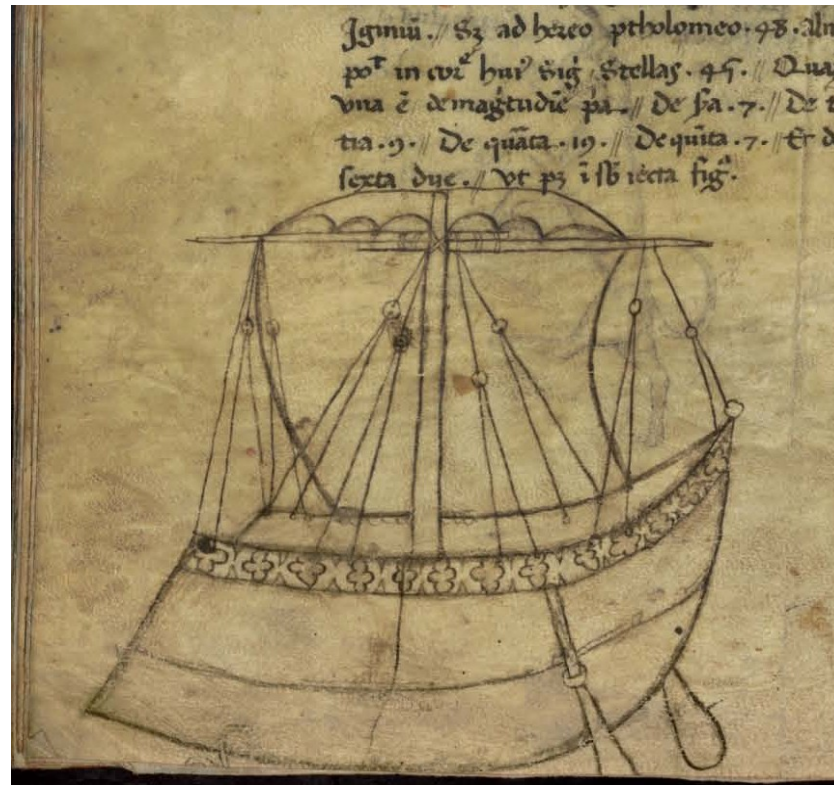 Iginiū. // Sꝫ ad hereo ptholomeo. 48. Alm
poᵗ in corᵉ huiꝰ sig̃ stellas. 45. // Qua
vna ē de mag̃tudīe p̃a. // De s̃a. 7. // De t
tia. 9. // De quãta. 19. // De quīta. 7. // Et d
sexta due. // vt pꝫ ī sƀiecta fig̃.